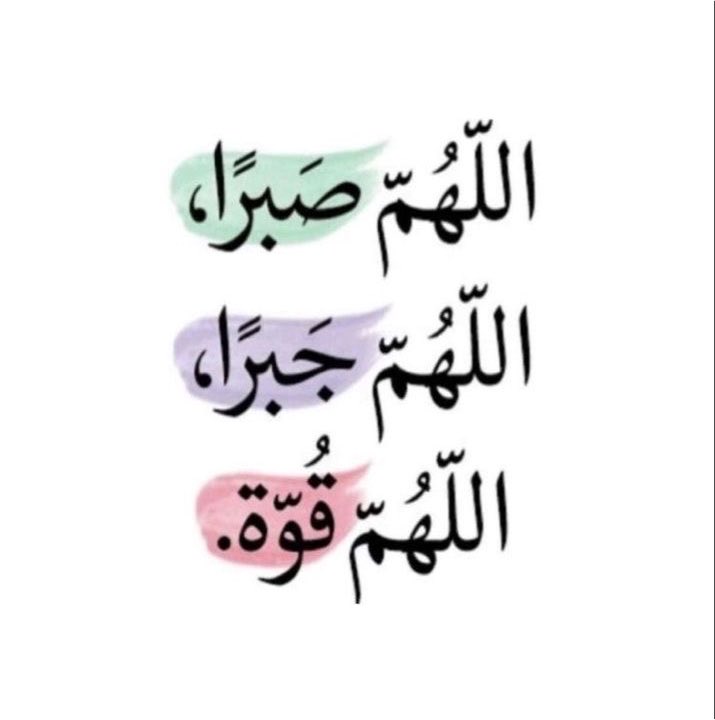 اللّهُمّ صَبرًا،
اللّهُمّ جَبرًا،
اللّهُمّ قُوّة.